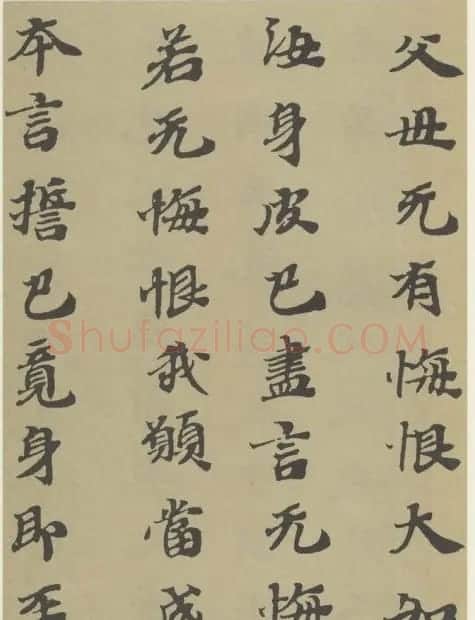 父母无有悔恨大如
海身皮已盡言无悔
若无悔恨我願當成
本言誓已竟身即
Shufaziliao.COM